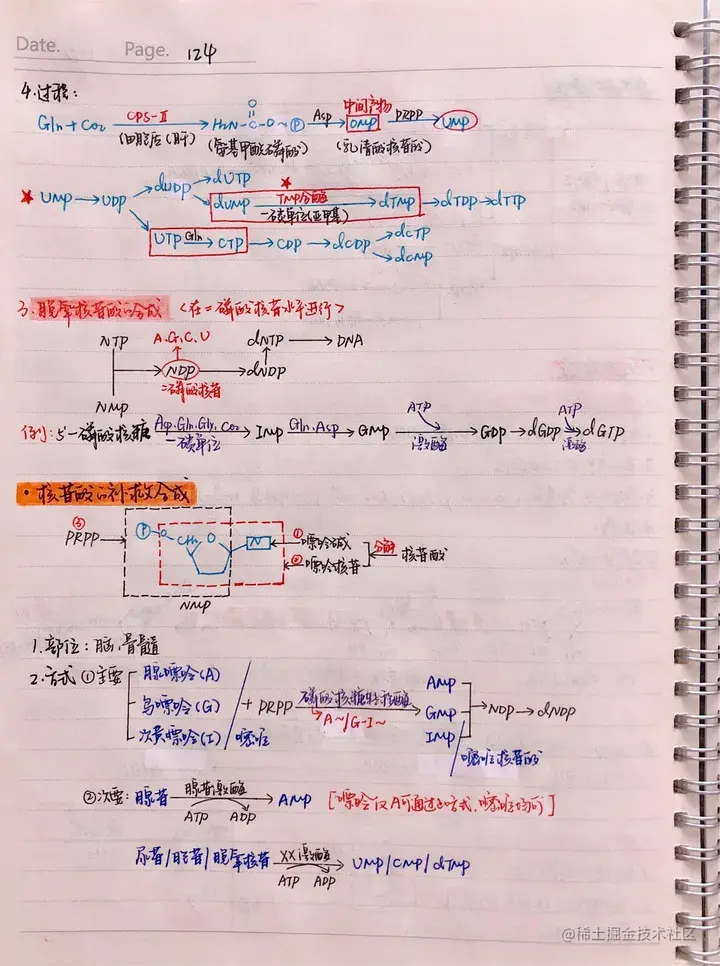 Date. Page. 124
4.过程:
Gln+CO₂ CPS-Ⅱ (细胞液(肝)) → H₂N-C(=O)-O~Ⓟ (氨基甲酰磷酸) Asp → 中间产物 OMP (乳清酸核苷酸) PRPP → UMP
★ UMP → UDP → dUDP → dUTP
dUMP TMP合酶 ★ 一碳单位(亚甲基) → dTMP → dTDP → dTTP
UTP Gln → CTP → CDP → dCDP → dCTP
dCMP
3.脱氧核苷酸的合成 <在二磷酸核苷水平进行>
NTP A.G.C.U dNTP → DNA
NDP → dNDP
二磷酸核苷
NMP
例: 5'-磷酸核糖 Asp.Gln.Gly.CO₂ 一碳单位 → IMP Gln.Asp → GMP ATP 激酶 → GDP → dGDP ATP 激酶 → dGTP
·核苷酸的补救合成
③ PRPP → Ⓟ-O-CH₂ O N ① 嘌呤碱
② 嘌呤核苷 分解 核苷酸
NMP
1.部位: 脑,骨髓
2.方式 ①主要 腺嘌呤(A)
鸟嘌呤(G)
次黄嘌呤(I) /嘧啶 + PRPP 磷酸核糖转移酶 A~/G-I~ → AMP
GMP → NDP → dNDP
IMP /嘧啶核苷酸
②次要: 腺苷 腺苷激酶 → AMP [嘌呤仅A可通过此方式,嘧啶均可]
ATP ADP
尿苷/胞苷/脱氧核苷 XX激酶 → UMP/CMP/dTMP
ATP ADP
@稀土掘金技术社区